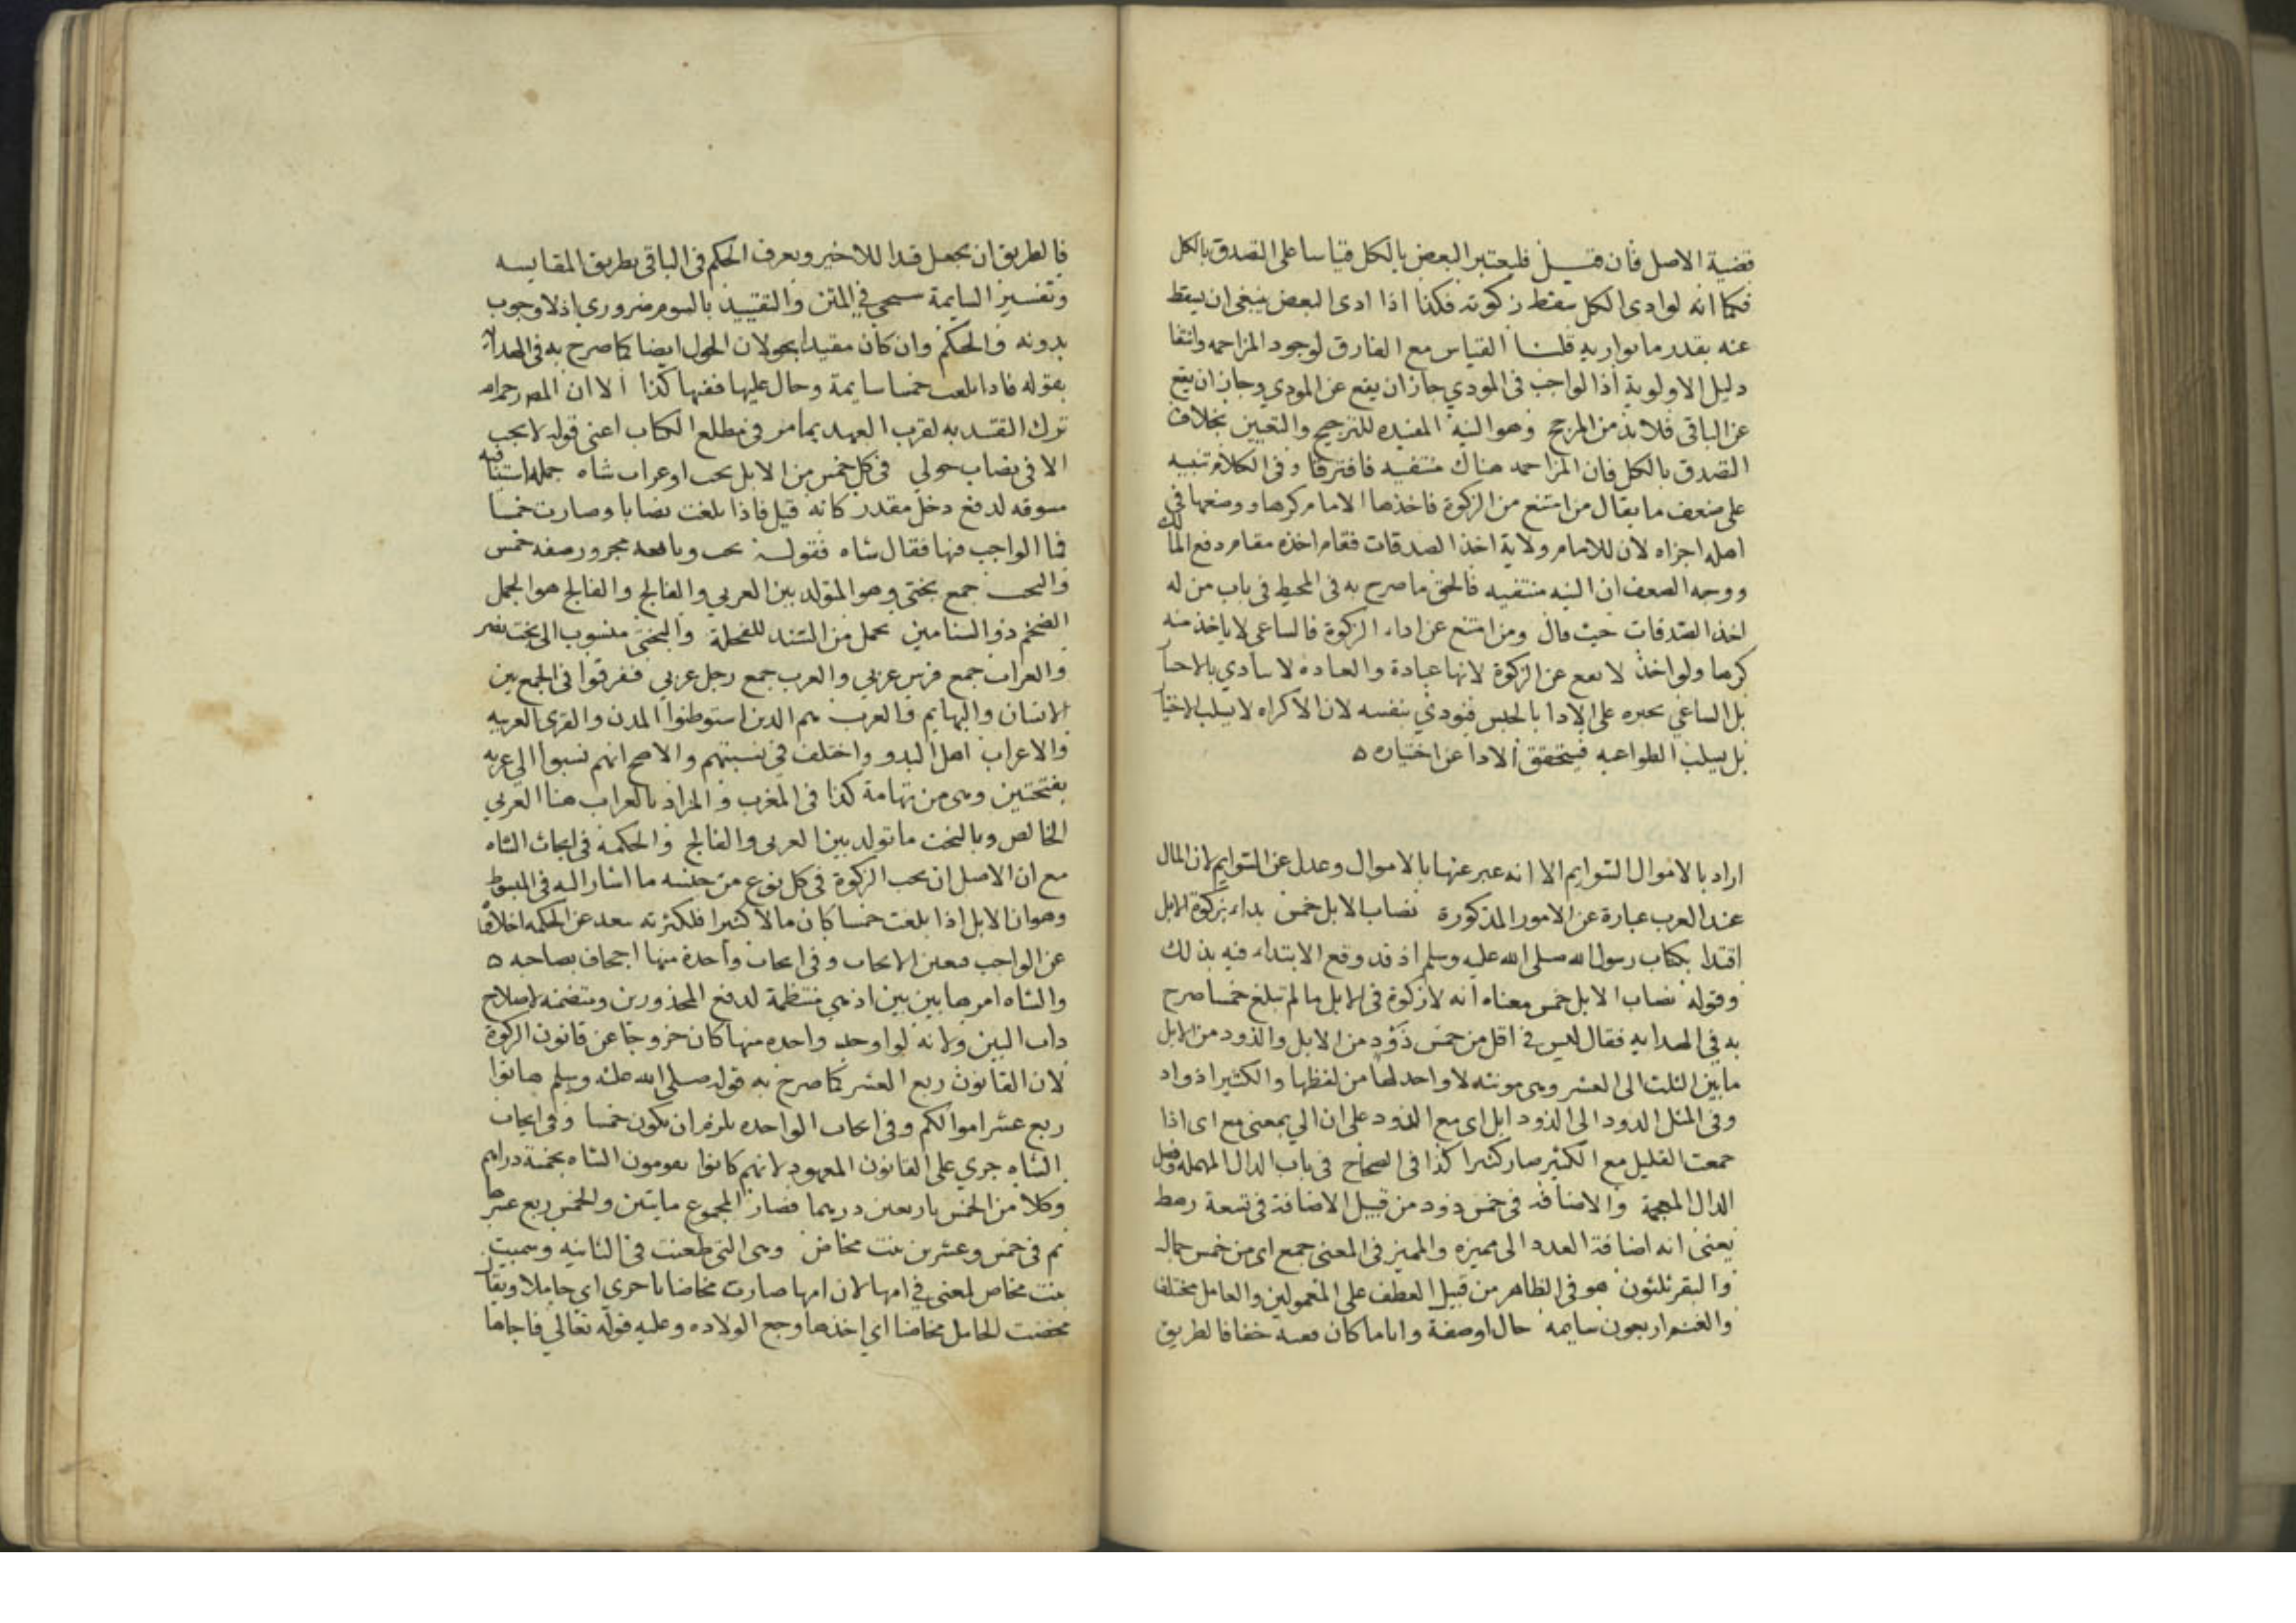 قضية الاصل فان قيل فليعتبر البعض بالكل قياسا على التصدق بالكل
فكما انه لو ادى الكل سقط زكوته فكذا اذا ادى البعض ينبغي ان يسقط
عنه بقدر ما يوازيه قلنا القياس مع الفارق لوجود المزاحمه وانتفا
دليل الاولوية اذ الواجب في المودي جاز ان يقع عن المودي وجاز ان يقع
عن الباقي فلا بد من المرجح وهو النيه المفيده للترجيح والتعيين بخلاف
التصدق بالكل فان المزاحمه هناك منتفيه فافترقا وفي الكلام تنبيه
على ضعف ما يقال من امتنع من الزكوة فاخذها الامام كرها ووضعها في
اهله اجزاه لان للامام ولاية اخذ الصدقات فقام اخذه مقام دفع المالك
ووجه الضعف ان النيه منتفيه فالحق ما صرح به في المحيط في باب من له
اخذ الصدقات حيث قال ومن امتنع عن اداء الزكوة فالساعي لا ياخذ منه
كرها ولو اخذ لا يقع عن الزكوة لانها عبادة والعباده لا تتادي بالاجبا
بل الساعي يجبره على الادا بالحبس فيودي بنفسه لان الاكراه لا يسلب الاختيا
بل يسلب الطواعيه فيتحقق الادا عن اختيار ه
اراد بالاموال السوايم الا انه عبر عنها بالاموال وعدل عن السوايم لان المال
عند العرب عبارة عن الامور المذكورة نصاب الابل خمس بداء بزكوة الابل
اقتدا بكتاب رسول الله صلى الله عليه وسلم اذ قد وقع الابتداء فيه بذلك
وقوله نصاب الابل خمس معناه انه لا زكوة في الابل ما لم تبلغ خمسا صرح
به في الهدايه فقال ليس في اقل من خمس ذود من الابل والذود من الابل
ما بين الثلث الى العشر وهي مونثه لا واحد لها من لفظها والكثير اذواد
وفي المثل الذود الى الذود ابل اي مع الذود على ان الي بمعنى مع اي اذا
جمعت القليل مع الكثير صار كثيرا كذا في الصحاح في باب الدال المهملة وفصل
الدال المعجمة والاضافة في خمس ذود من قبيل الاضافة في تسعة رهط
يعني انه اضافة العدد الى مميزه والمميز في المعنى جمع اي من خمس جمال
والبقر ثلثون هو في الظاهر من قبيل العطف على المعمولين والعامل مختلف
والغنم اربعون سايمه حال او صفة واياما كان ففيه خفا فالطريق
فالطريق ان يجعل قيدا للاخير ويعرف الحكم في الباقي بطريق المقايسه
وتفسير السايمة سيجي في المتن والتقييد بالسوم ضروري اذ لا وجوب
بدونه والحكم وان كان مقيدا بحولان الحول ايضا كما صرح به في الهدايه
بقوله فاذا بلغت خمسا سايمة وحال عليها ففيها كذا الا ان المص رحمه الله
ترك التقييد به لقرب العهد بما مر في مطلع الكتاب اعني قوله لا يجب
الا في نصاب حولي في كل خمس من الابل بخت او عراب شاه جملة استينافيه
مسوقه لدفع دخل مقدر كانه قيل فاذا بلغت نصابا وصارت خمسا
فما الواجب فيها فقال شاه فقوله بخت وما بعده مجرور صفه خمس
والبخت جمع بختي وهو المتولد بين العربي والفالج والفالج هو الجمل
الضخم ذو السنامين يحمل من السند للفحلة والبختي منسوب الى بخت نصر
والعراب جمع فرس عربي والعرب جمع رجل عربي ففرقوا في الجمع بين
الانسان والبهايم والعرب هم الذين استوطنوا المدن والقرى العربيه
والاعراب اهل البدو واختلف في نسبتهم والاصح انهم نسبوا الى عربه
بفتحتين وهي من تهامة كذا في المغرب والمراد بالعراب هنا العربي
الخالص وبالبخت ما تولد بين العربي والفالج والحكمة في ايجاب الشاه
مع ان الاصل ان يجب الزكوة في كل نوع من جنسه ما اشار اليه في المبسوط
وهو ان الابل اذا بلغت خمسا كان مالا كثيرا فلكثرته يبعد عن الحكمة اخلاوه
عن الواجب فتعين الايجاب وفي ايجاب واحدة منها اجحاف بصاحبه ه
والشاه امرها بين بين اذ هي منتظمة لدفع المحذورين ومتضمنه لاصلاح
ذات البين ولانه لو اوجب واحده منها كان خروجا عن قانون الزكوة
لان القانون ربع العشر كما صرح به قوله صلى الله عليه وسلم هاتوا
ربع عشر اموالكم وفي ايجاب الواحده يلزم ان يكون خمسا وفي ايجاب
الشاه جري على القانون المعهود لانهم كانوا يقومون الشاه بخمسة دراهم
وكلا من الخمس باربعين درهما فصار المجموع مايتين والخمس ربع عشرها
ثم في خمس وعشرين بنت مخاض وهي التي طعنت في الثانيه وسميت
بنت مخاض لمعنى في امها لان امها صارت مخاضا باخرى اي حاملا ويقال
مخضت الحامل مخاضا اي اخذها وجع الولاده وعليه قوله تعالى فاجاها